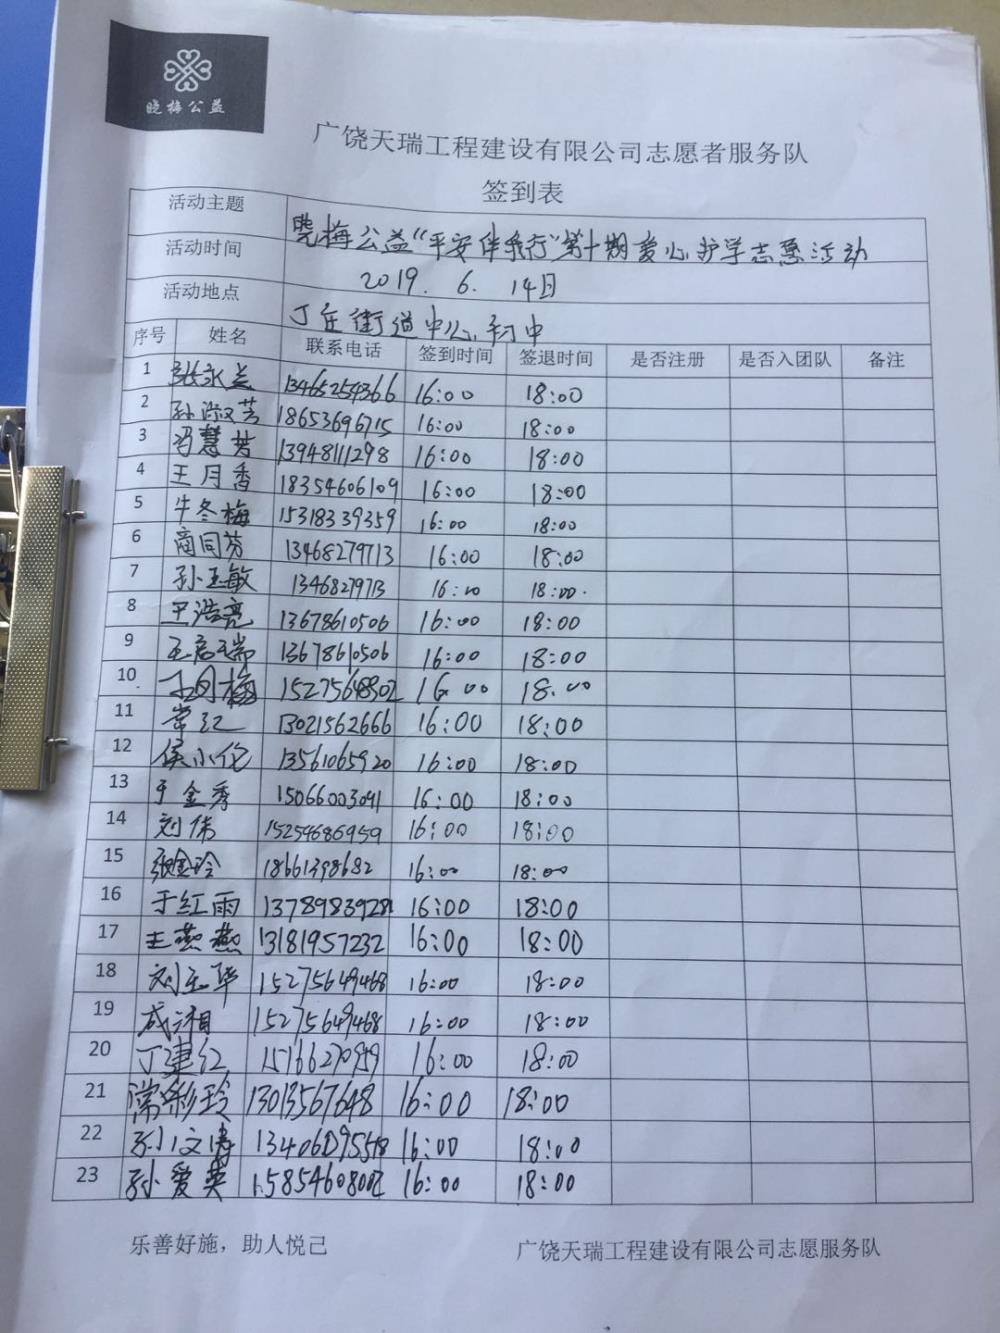 晓梅公益
广饶天瑞工程建设有限公司志愿者服务队
签到表
活动主题 晓梅公益“平安伴我行”第十期爱心护学志愿活动
活动时间 2019. 6. 14日
活动地点 丁庄街道中心初中
序号 姓名 联系电话 签到时间 签退时间 是否注册 是否入团队 备注
1 张永兰 13465254366 16:00 18:00
2 孙淑芳 18653696715 16:00 18:00
3 冯慧芳 13948111298 16:00 18:00
4 王月香 18354606109 16:00 18:00
5 牛冬梅 15318339359 16:00 18:00
6 商同芬 13468279713 16:00 18:00
7 孙玉敏 13468279713 16:00 18:00
8 王浩亮 13678610506 16:00 18:00
9 王启瑞 13678610506 16:00 18:00
10 丁月梅 15275648802 16:00 18:00
11 常红 13021562666 16:00 18:00
12 侯小伦 13561065920 16:00 18:00
13 于金秀 15066003091 16:00 18:00
14 刘伟 15254686959 16:00 18:00
15 张金玲 18661398682 16:00 18:00
16 于红雨 13789839281 16:00 18:00
17 王燕燕 13181957232 16:00 18:00
18 刘玉华 15275649468 16:00 18:00
19 成湘 15275649468 16:00 18:00
20 丁建红 16:00 18:00
21 常彩玲 13013567648 16:00 18:00
22 孙文涛 16:00 18:00
23 孙爱英 15854608002 16:00 18:00
乐善好施，助人悦己 广饶天瑞工程建设有限公司志愿服务队